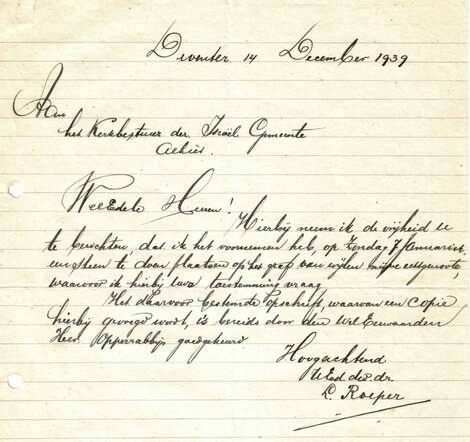 Deventer 14 December 1939
Aan
het Kerkbestuur der Israël Gemeente
Alhier.
WelEdele Heeren!
Hierbij neem ik de vrijheid U
te berichten, dat ik het voornemen heb, op Zondag 7 Januari a.s.
een steen te doen plaatsen op het graf van wijlen mijne echtgenoote,
waarvoor ik hierbij Uwe toestemming vraag.
Het daarvoor bestemde opschrift, waarvan een Copie
hierbij gevoegd wordt, is bereids door den WelEerwaarden
Heer Opperrabbijn goedgekeurd.
Hoogachtend
UEd. dw. dr.
L. Roeper